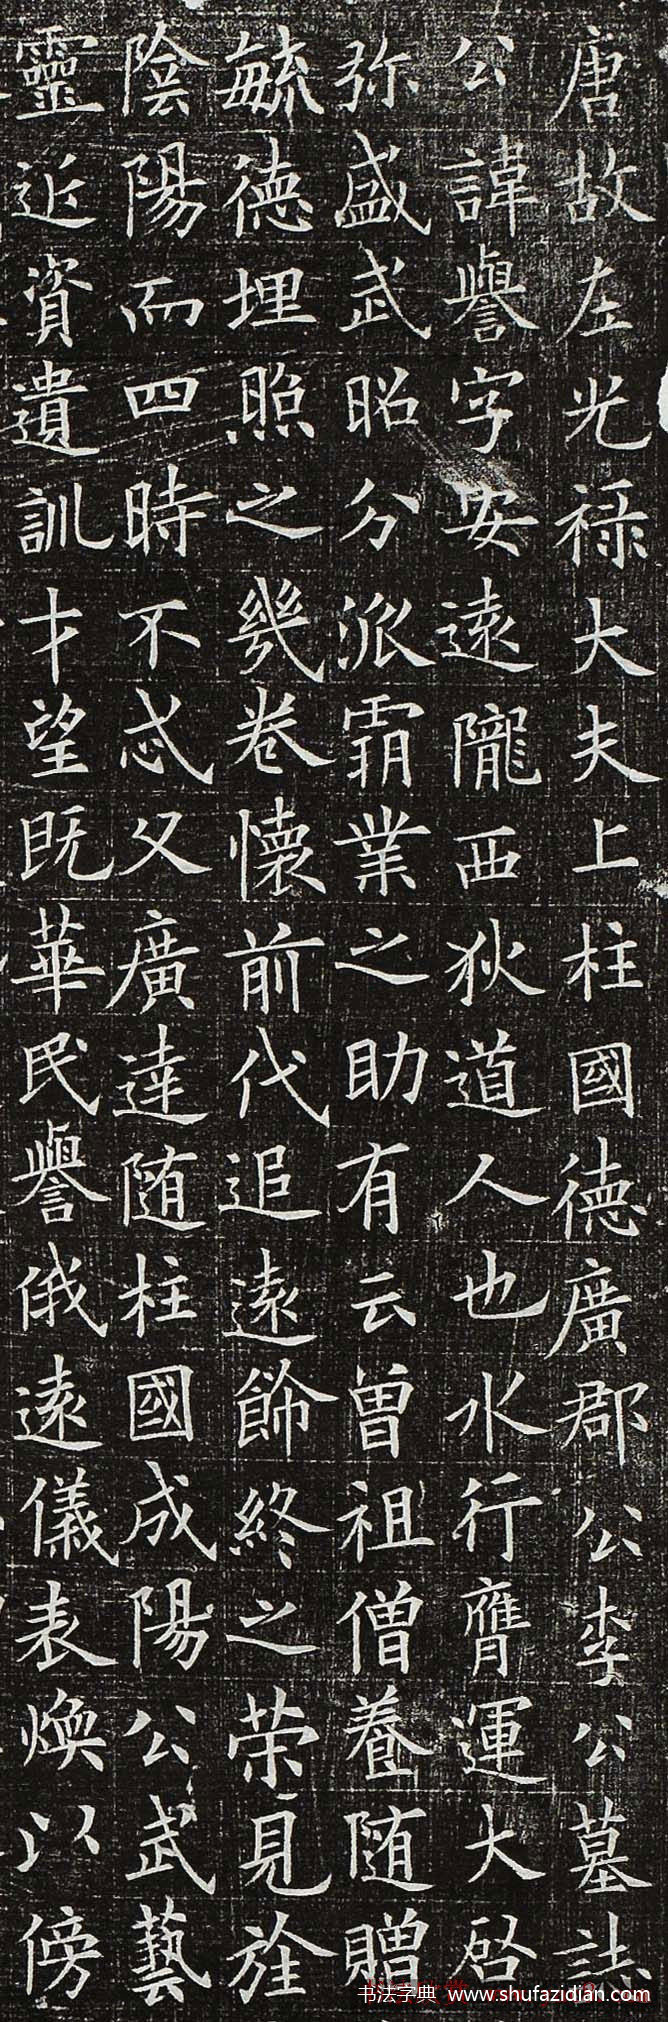 唐故左光禄大夫上柱國德廣郡公李公墓誌
公諱譽字安遠隴西狄道人也水行膺運大啓
弥盛武昭分派霸業之助有云曽祖僧養随贈
毓德埋照之幾卷懷前代追遠飾終之荣見於
陰陽而四時不忒父廣達随柱國成陽公武藝
靈近資遺訓才望既華民譽俄遠儀表煥以傍
书法字典 www.shufazidian.com